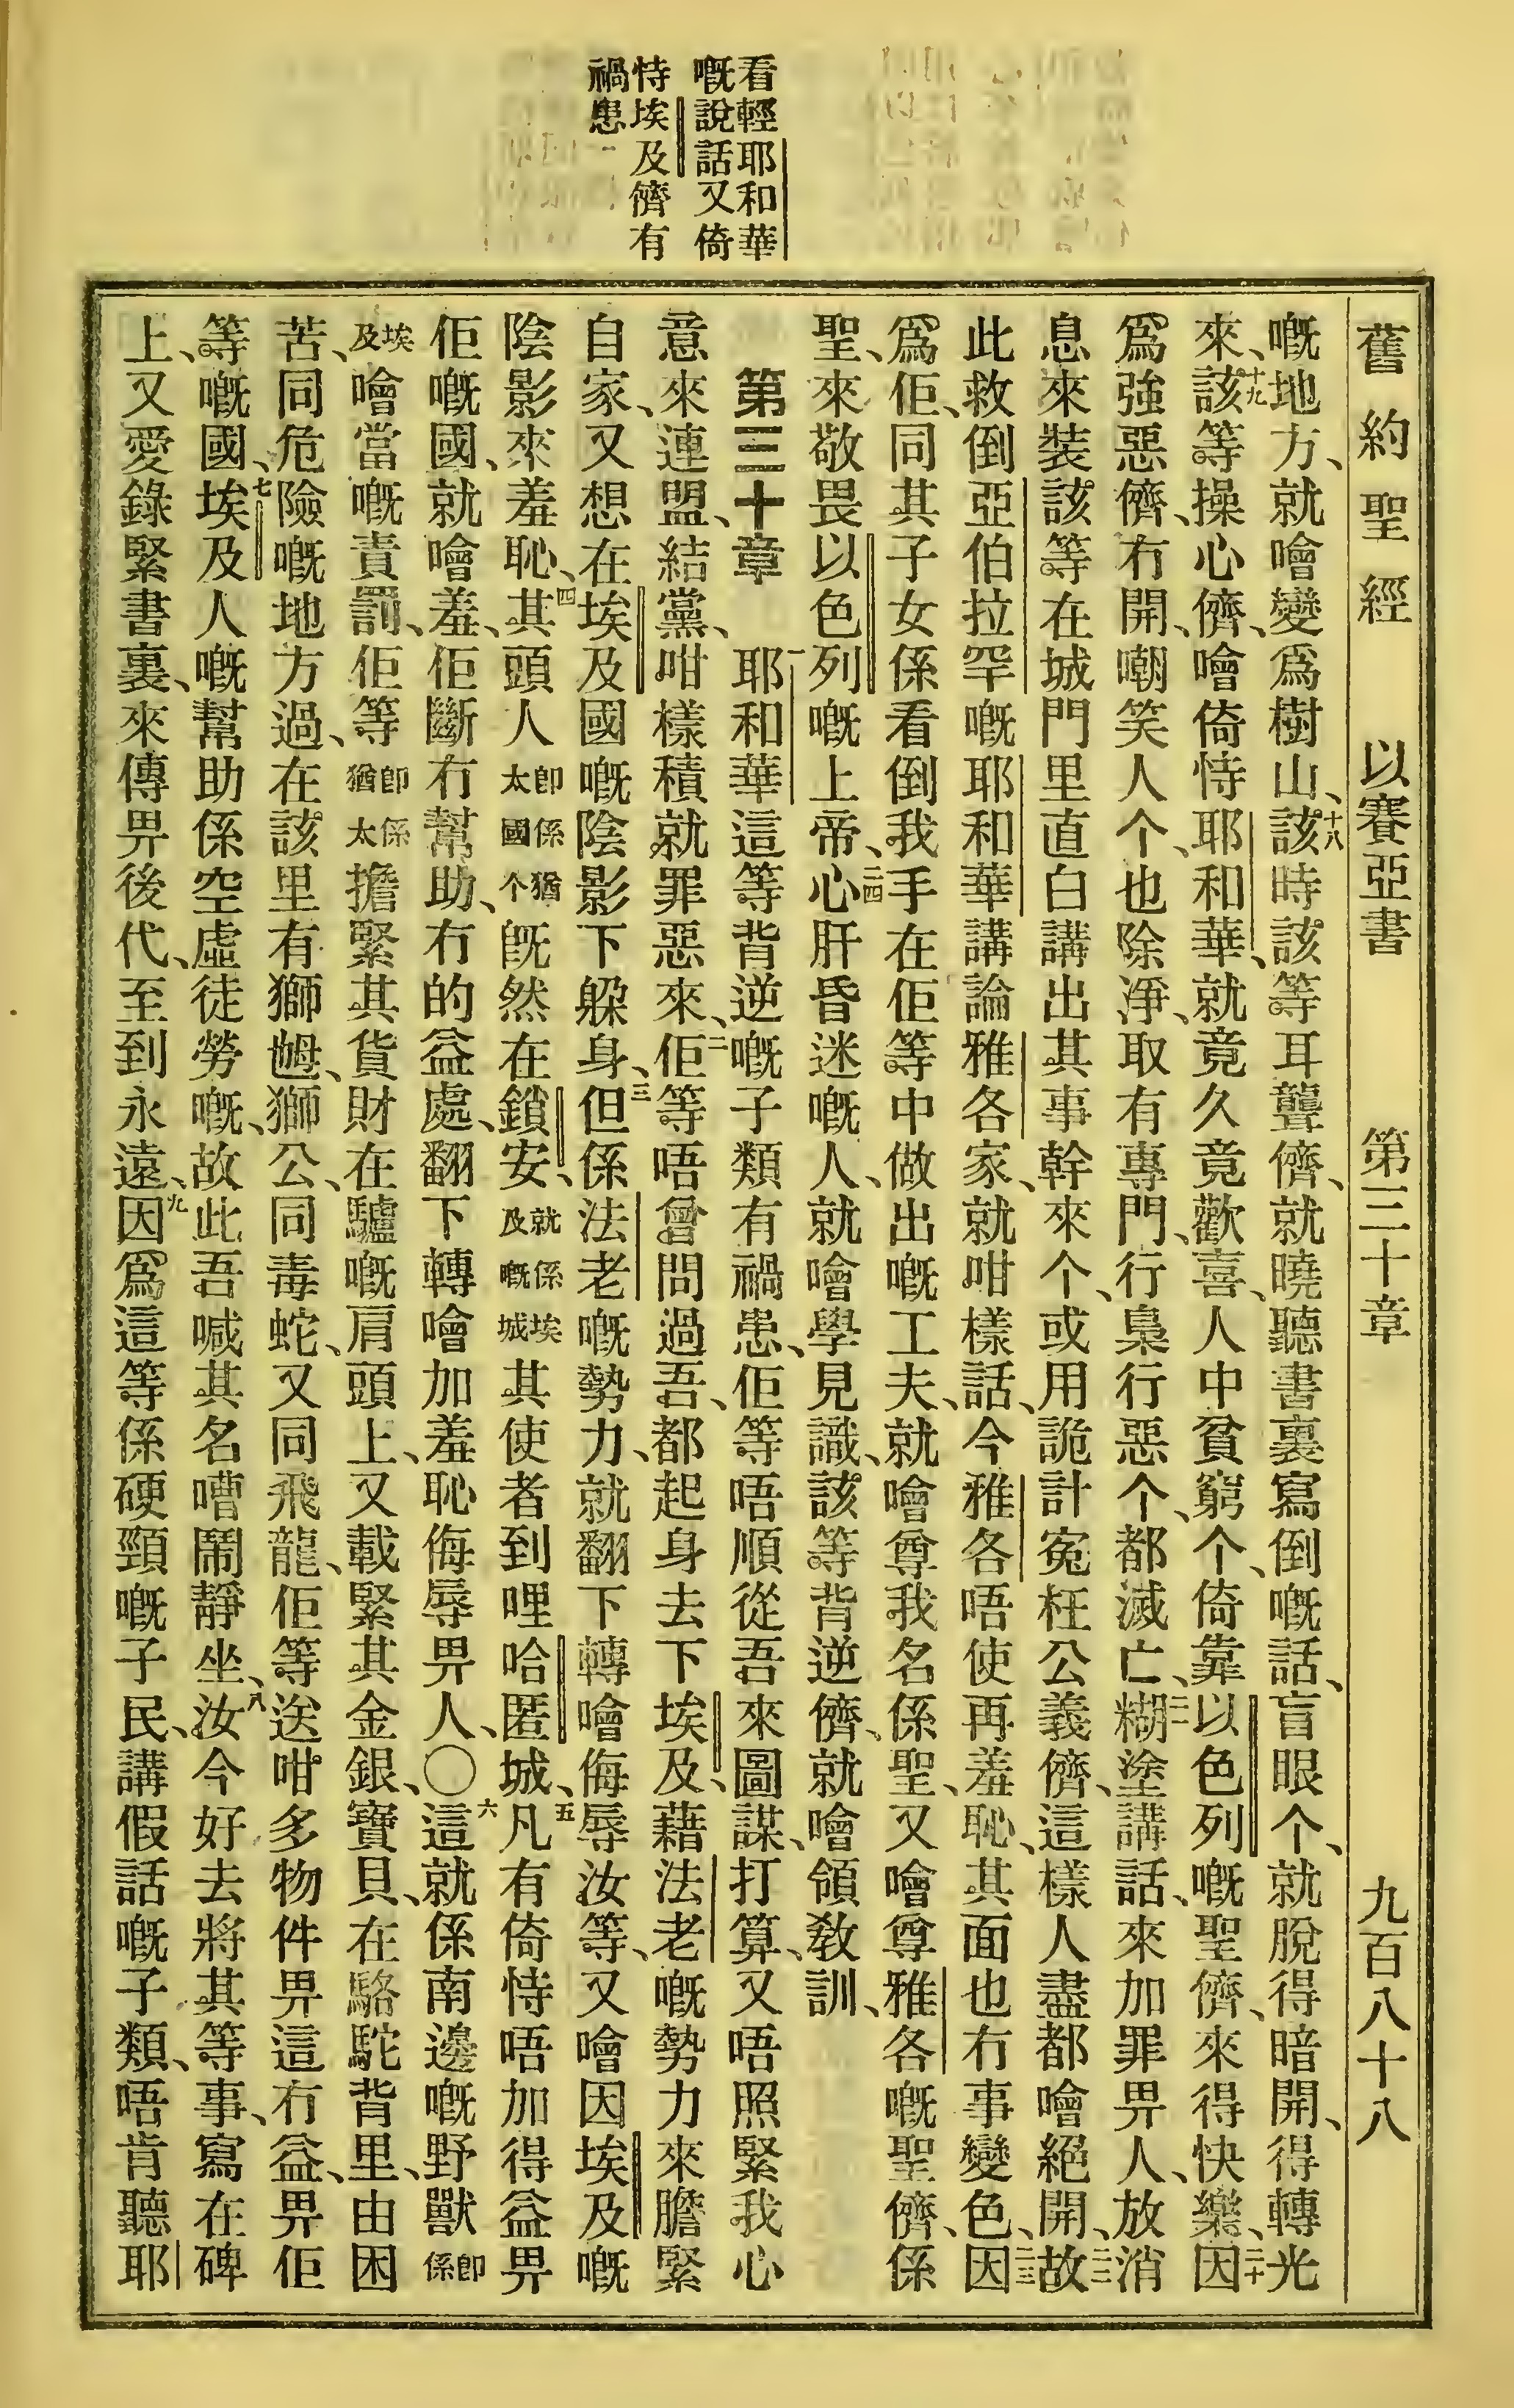 舊約聖經　以賽亞書　第三十章　九百八十八
看輕耶和華
嘅說話又倚
恃埃及儕有
禍患
嘅地方、就噲變爲樹山、十八該時該等耳聾儕、就曉聽書裏寫倒嘅話、盲眼个、就脫得暗開、得轉光
來、十九該等操心儕、噲倚恃耶和華、就竟久竟歡喜、人中貧窮个、倚靠以色列嘅聖儕、來得快樂、二十因
爲強惡儕、冇開、嘲笑人个、也除淨、取有專門、行梟行惡个、都滅亡、二一糊塗講話、來加罪畀人、放消
息來裝該等在城門里直白講出其事幹來个、或用詭計寃枉公義儕、這樣人盡都噲絕開、二二故
此救倒亞伯拉罕嘅耶和華講論雅各家、就咁樣話、今雅各唔使再羞恥、其面也冇事變色、二三因
爲佢、同其子女係看倒我手在佢等中做出嘅工夫、就噲尊我名係聖、又噲尊雅各嘅聖儕、係
聖、來敬畏以色列嘅上帝、二四心肝昏迷嘅人、就噲學見識、該等背逆儕、就噲領教訓、
第三十章　一耶和華這等背逆嘅子類有禍患、佢等唔順從吾來圖謀、打算、又唔照緊我心
意來連盟、結黨、咁樣積就罪惡來、二佢等唔曾問過吾、都起身去下埃及、藉法老嘅勢力來膽緊
自家、又想在埃及國嘅陰影下躲身、三但係法老嘅勢力、就翻下轉噲侮辱汝等、又噲因埃及嘅
陰影來羞恥、四其頭人卽係猶太國个旣然在鎖安、就係埃及嘅城其使者到哩哈匿城、五凡有倚恃唔加得益畀
佢嘅國、就噲羞、佢斷冇幫助、冇的益處、翻下轉噲加羞恥侮辱畀人、〇六這就係南邊嘅野獸卽係
埃及噲當嘅責罰、佢等卽係猶太擔緊其貨財在驢嘅肩頭上、又載緊其金銀、寶貝、在駱駝背里、由困
苦、同危險嘅地方過、在該里有獅𡜵、獅公、同毒蛇、又同飛龍、佢等送咁多物件畀這冇益、畀佢
等嘅國、七埃及人嘅幫助係空虛徒勞嘅、故此吾喊其名嘈鬧靜坐、八汝今好去將其等事、寫在碑
上、又愛錄緊書裏、來傳畀後代、至到永遠、九因爲這等係硬頸嘅子民、講假話嘅子類、唔肯聽耶